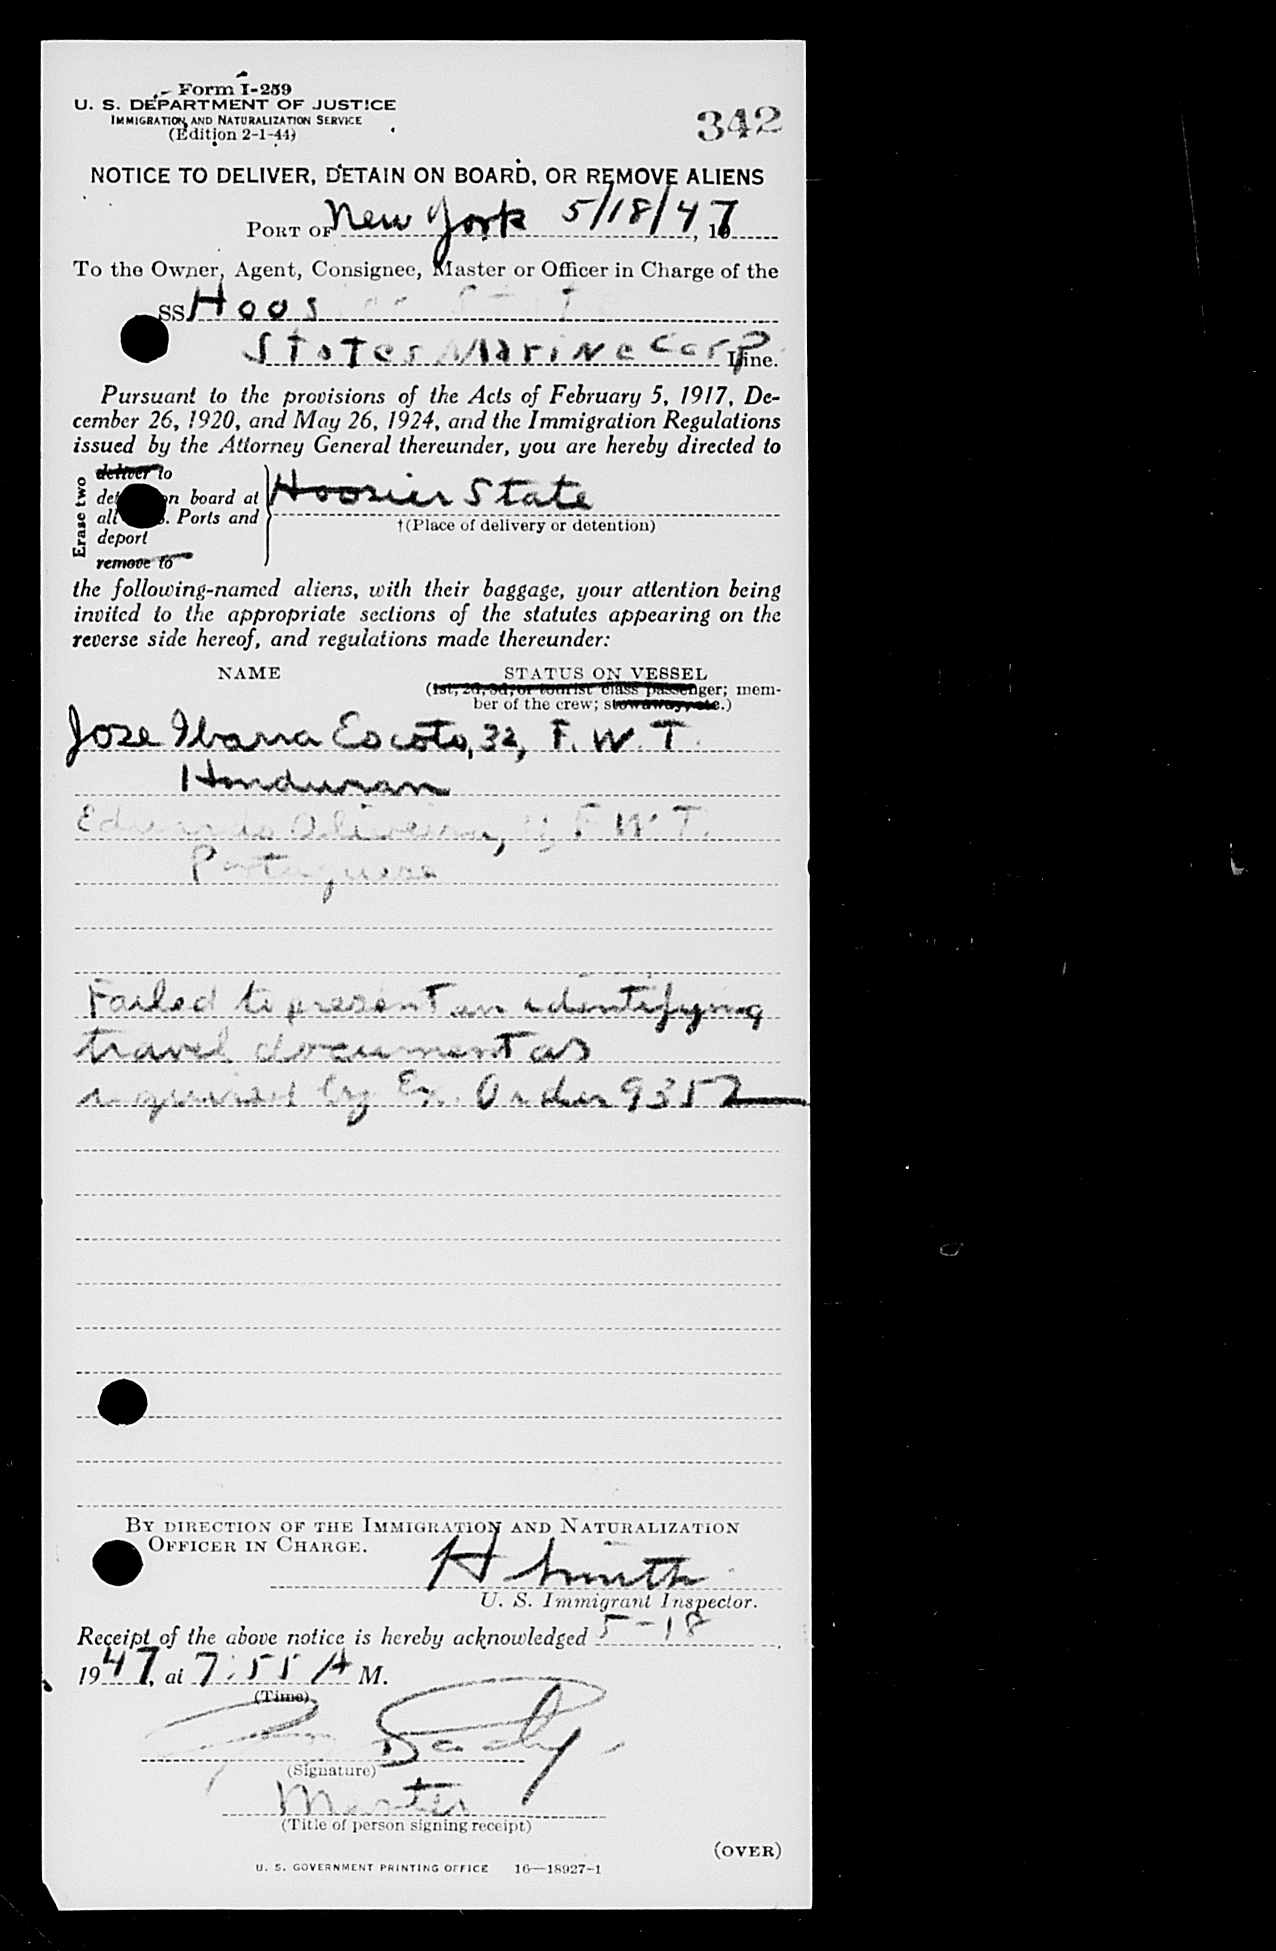 Form I-259
U. S. DEPARTMENT OF JUSTICE
IMMIGRATION AND NATURALIZATION SERVICE
(Edition 2-1-44)
342
NOTICE TO DELIVER, DETAIN ON BOARD, OR REMOVE ALIENS
PORT OF New York 5/18/47, 19
To the Owner, Agent, Consignee, Master or Officer in Charge of the
SS Hoosier State
States Marine Corp Line.
Pursuant to the provisions of the Acts of February 5, 1917, De-
cember 26, 1920, and May 26, 1924, and the Immigration Regulations
issued by the Attorney General thereunder, you are hereby directed to
Erase two
deliver to
detain on board at
all U.S. Ports and
deport
remove to
Hoosier State
†(Place of delivery or detention)
the following-named aliens, with their baggage, your attention being
invited to the appropriate sections of the statutes appearing on the
reverse side hereof, and regulations made thereunder:
NAME STATUS ON VESSEL
(1st, 2d, 3d, or tourist class passenger; mem-
ber of the crew; stowaway, etc.)
Jose Ibarra Escoto, 32, F. W. T.
Honduran
Eduardo Oliveira, F. W. T.
Portuguese
Failed to present an identifying
travel document as
required by Ex. Order 9352
BY DIRECTION OF THE IMMIGRATION AND NATURALIZATION
OFFICER IN CHARGE.
H Smith
U. S. Immigrant Inspector.
Receipt of the above notice is hereby acknowledged 5-18
1947, at 7:55 A M.
(Time)
(Signature)
Master
(Title of person signing receipt)
(OVER)
U. S. GOVERNMENT PRINTING OFFICE 16—18927-1